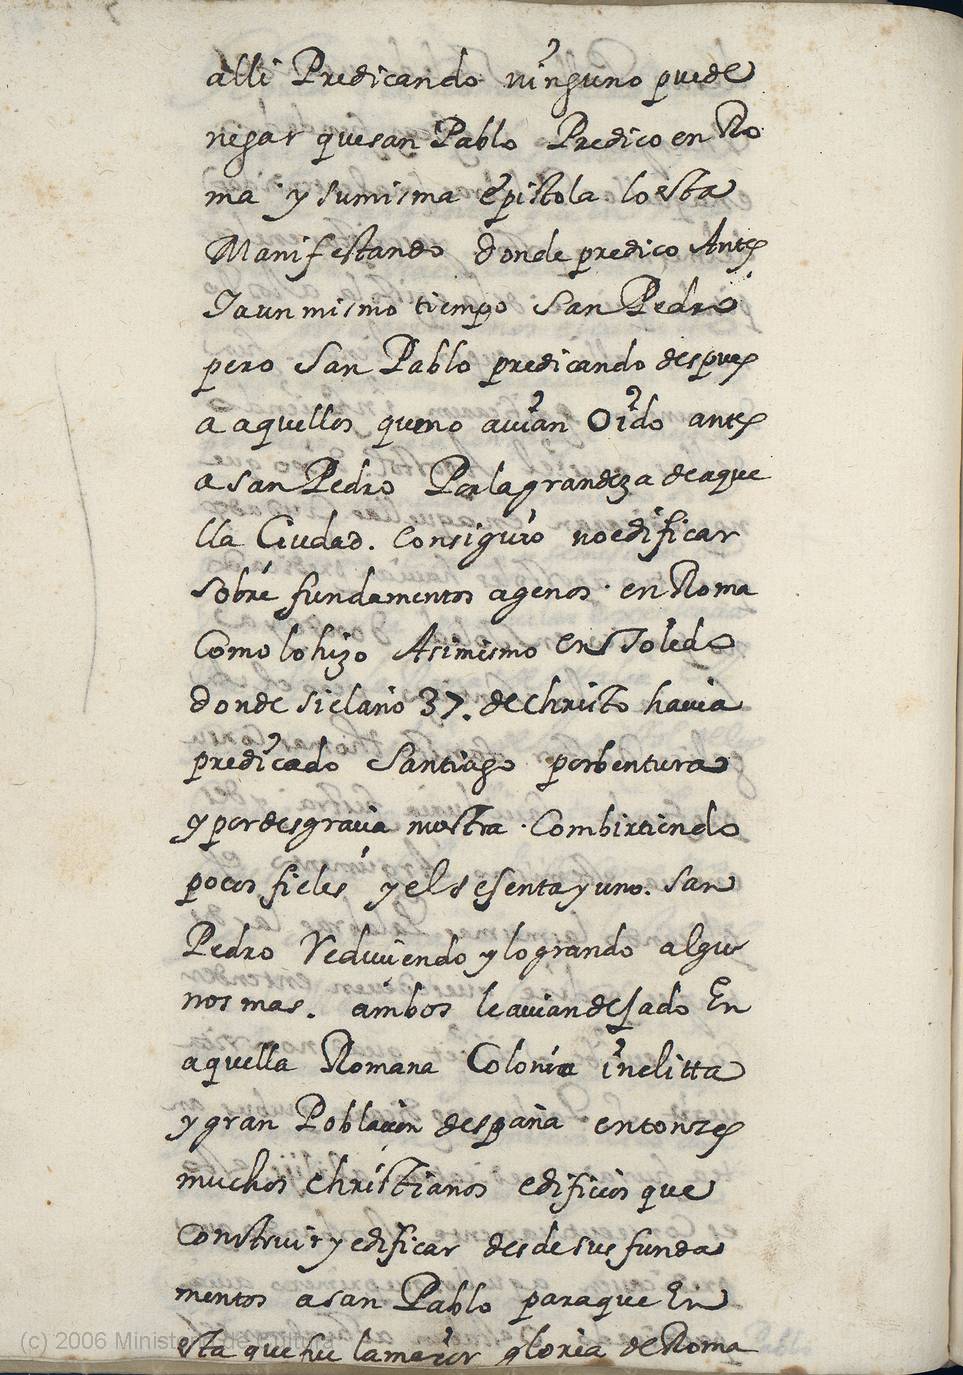 alli Predicando ninguno puede
negar quesan Pablo Predico en Ro
ma y sumisma epistola lo esta
Manifestando donde predico Antes
Jaun mismo tiempo San Pedro
pero San Pablo predicando despues
a aquellos queno avian Oido antes
a san Pedro Porla grandeza de aque
lla Ciudad. Consiguio no edificar
sobre fundamentos agenos. en Roma
Como lo hizo Asimismo en Toledo
donde si el año 37. de Christo havia
predicado Santiago porbentura
y por desgracia nuestra. Combirtiendo
pocos fieles y el sesenta y uno. San
Pedro Reduciendo y logrando algu
nos mas. ambos le avian dejado En
aquella Romana Colonia inclitta
y gran Poblacion despaña entonzes
muchos christianos edificios que
Construir y edificar desde sus funda
mentos a san Pablo para que En
esta que fue la mejor gloria de Roma
(c) 2006 Ministerio de Cultura